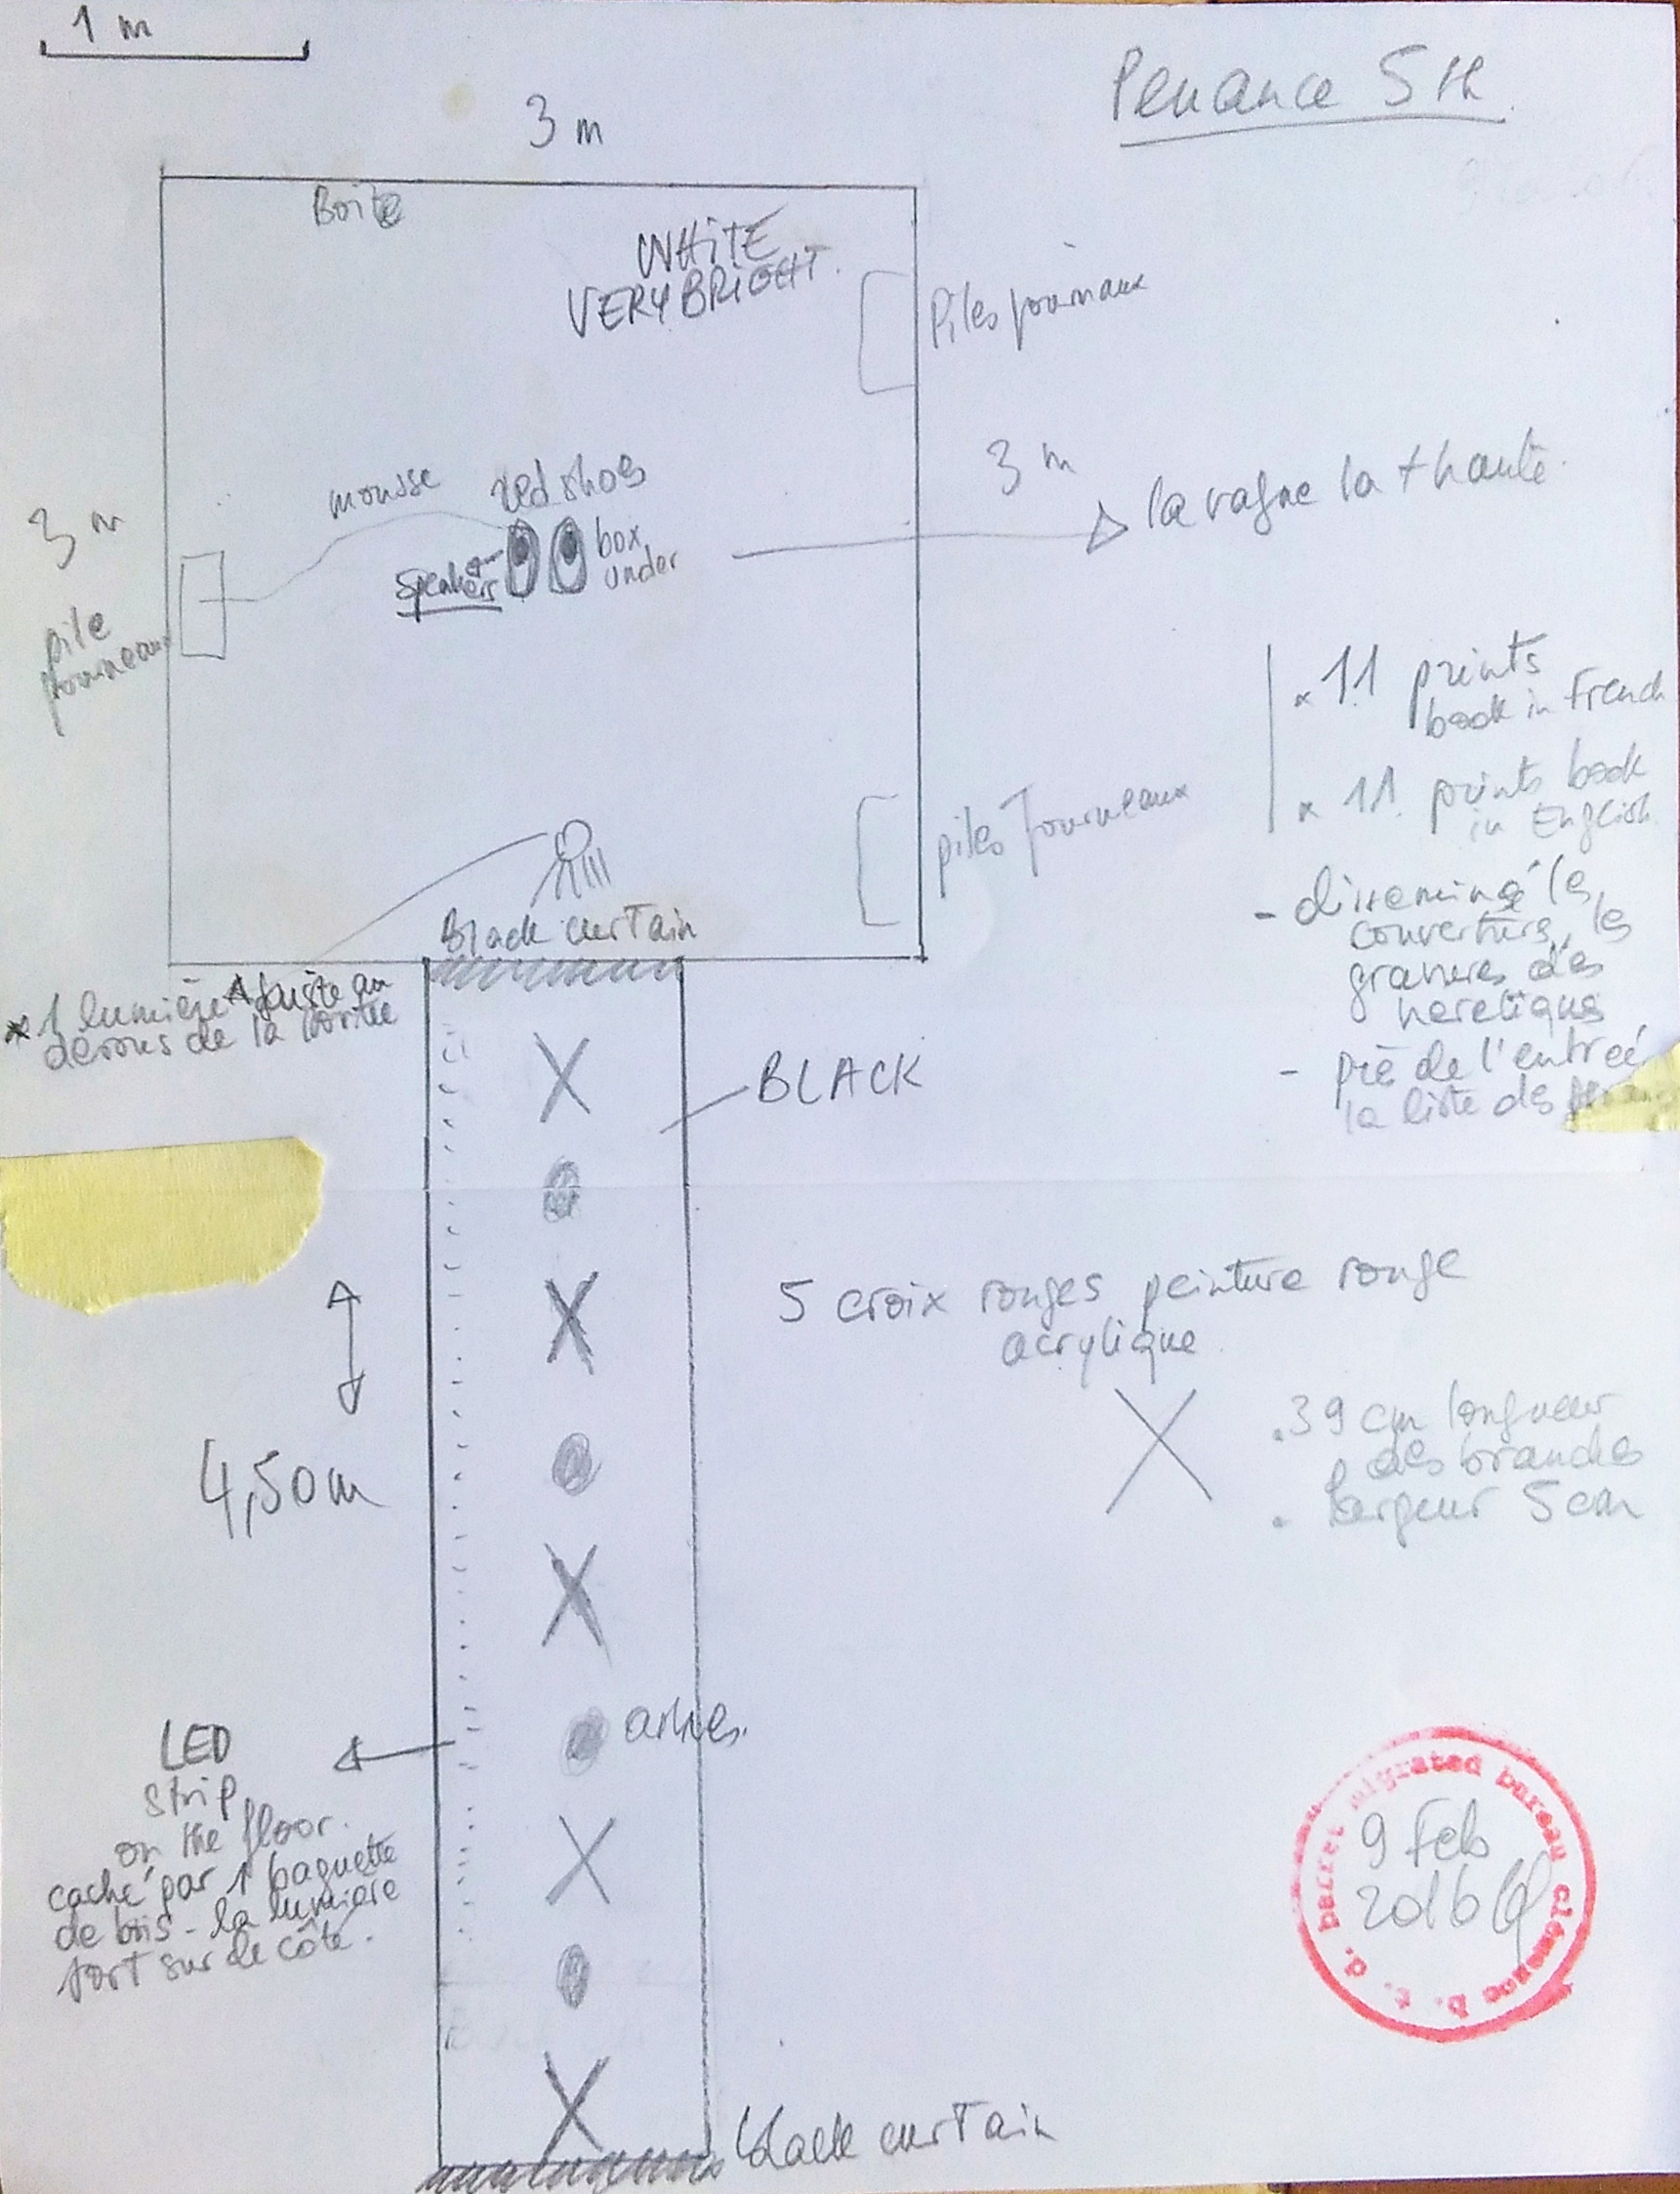 1 m
Penance 5 th
3 m
Boite
WHITE
VERY BRIGHT.
Piles journaux
3 m
la vague la + haute
mousse
red shoes
box
under
speakers
3 m
pile
journeaux
x 11 prints
book in French
x 11 prints book
in English
piles Journeaux
- disseminé les
couvertures, les
gravures des
heretiques
- prè de l'entreé
la liste des
Black curtain
x 1 lumière juste au
dessus de la
BLACK
5 croix rouges peinture rouge
acrylique
. 39 cm longueur
des branches
. largeur 5 cm
4,50m
LED
strip
on the floor.
caché par 1 baguette
de bois - la lumière
sort sur le côté.
9 Feb
2016
migrated bureau
black curtain